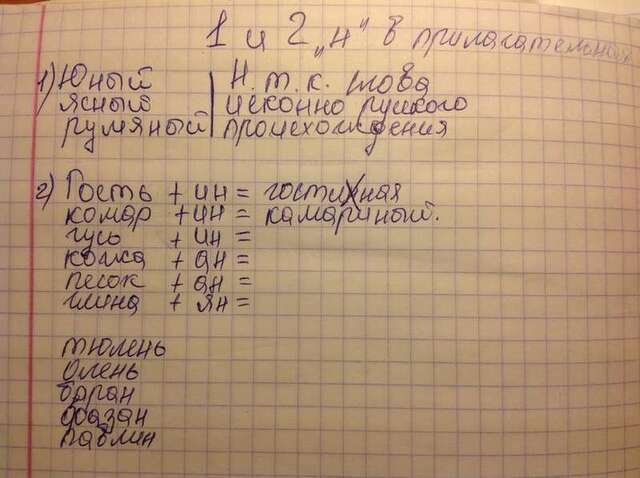 1 и 2 „н" в прилагательных
1) Юный | Н. т. к. слова
ясный | исконно руского
румяный | происхождения
2) Гость + ин = гостиная
комар + ин = камариный.
гусь + ин =
кожа + ан =
песок + ан =
глина + ян =
тюлень
олень
баран
фазан
павлин